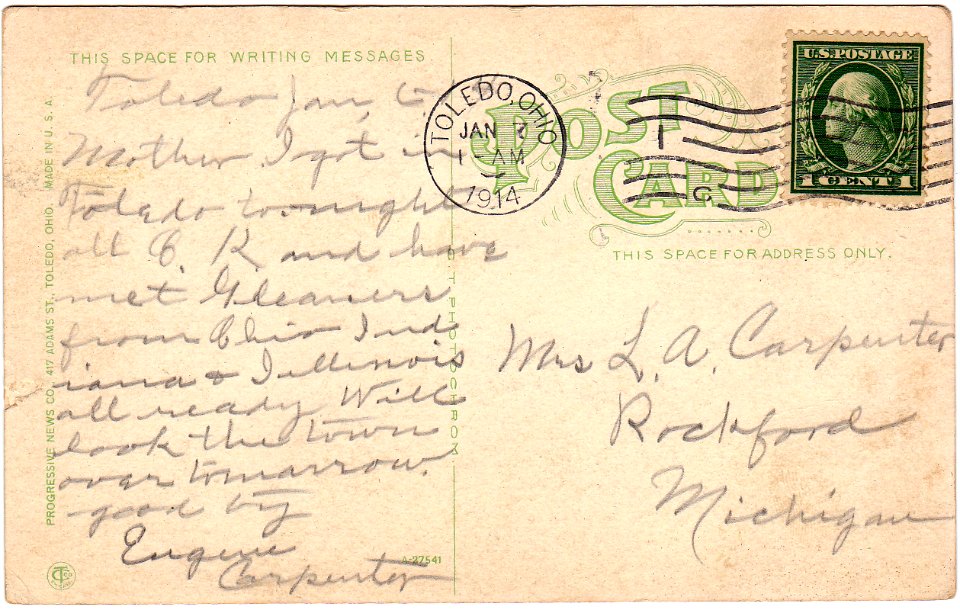 THIS SPACE FOR WRITING MESSAGES
Toledo Jan, 6
Mother I got in
Toledo to-night
all O. K. and have
met Gleaners
from Ohio Ind
iana & Illinois
all ready Will
look the town
over tomarrow.
good by
Eugene
Carpenter
PROGRESSIVE NEWS CO., 417 ADAMS ST., TOLEDO, OHIO. MADE IN U. S. A.
C.T. PHOTOCHROM
A-27541
CT
TOLEDO, OHIO
JAN 7
1-AM
1914
POST
CARD
1
C
U.S. POSTAGE
1 CENT 1
THIS SPACE FOR ADDRESS ONLY.
Mrs L. A. Carpenter
Rockford
Michigan